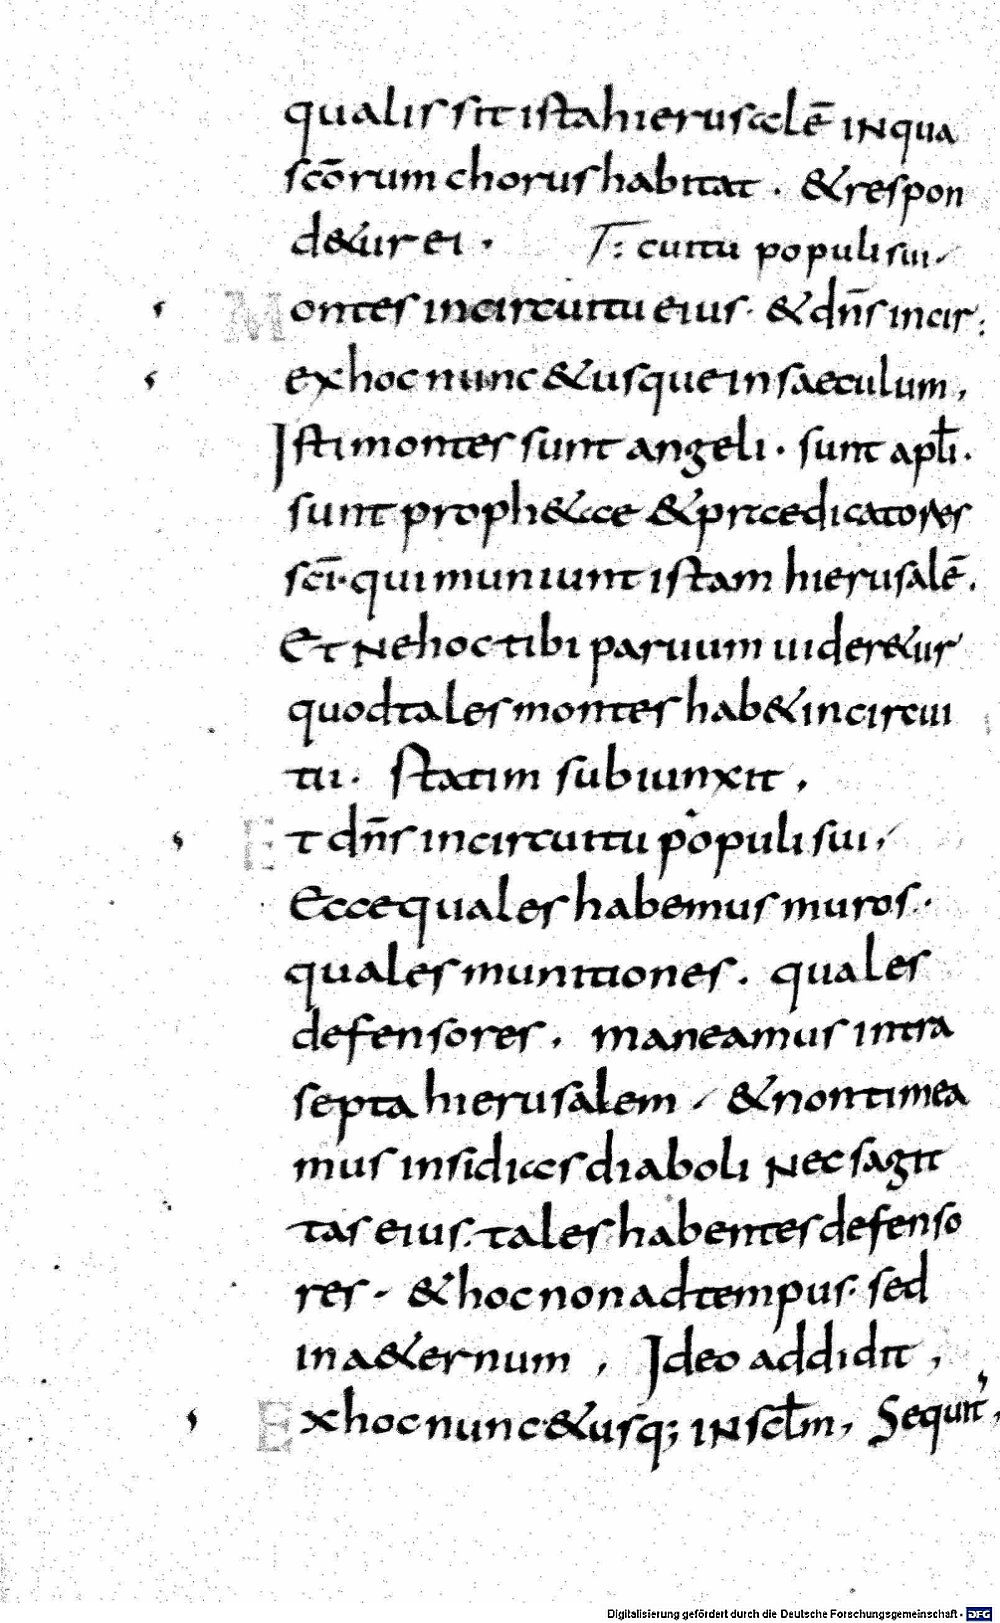 qualis sit ista hierusalē in qua
scōrum chorus habitat . & respon
de&ur ei . T: cuitu populi sui
Montes in circuitu eius . & dn̄s in cir:
ex hoc nunc & usque in saeculum ,
Isti montes sunt angeli . sunt apłi .
sunt proph&ae & praedicatores
scī . qui muniunt istam hierusalē .
Et ne hoc tibi paruum uider&ur
quod tales montes hab& in circui
tu . Statim subiunxit ,
Et dn̄s in circuitu populi sui ,
Ecce quales habemus muros .
quales munitiones . quales
defensores , maneamus intra
septa hierusalem / & non timea
mus insidias diaboli nec sagit
tas eius . tales habentes defenso
res - & hoc non ad tempus . sed
in a&ernum , Ideo addidit ,
Ex hoc nunc & usq; in scłm , Sequit̉ ,
Digitalisierung gefördert durch die Deutsche Forschungsgemeinschaft - DFG